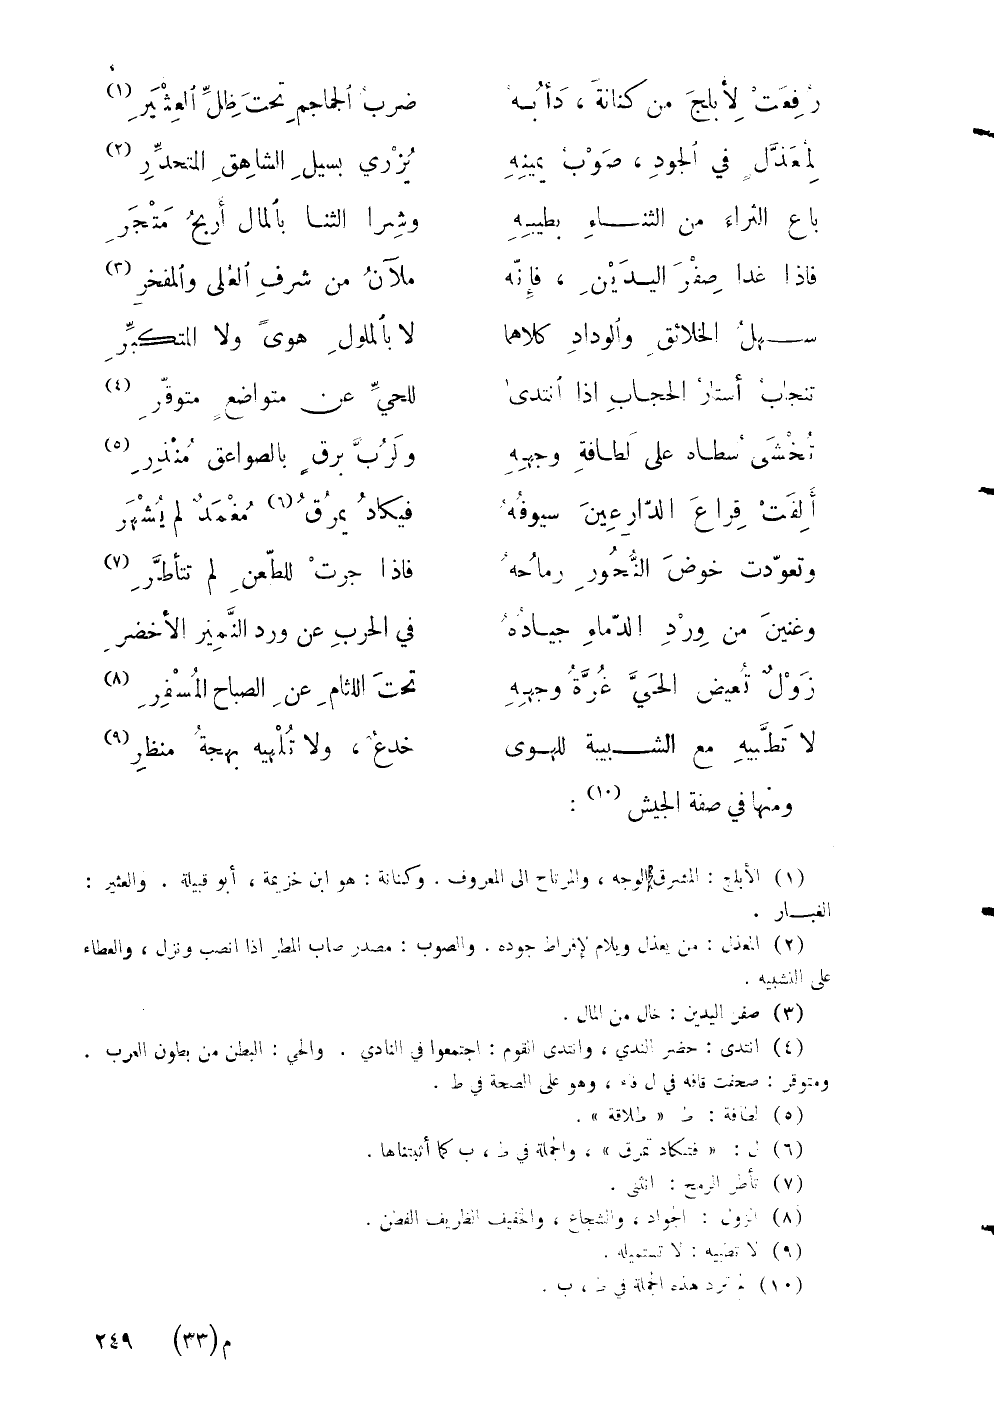 رُفِعَتْ لِأَبلجَ من كنانةَ ، دَأْبُهُ ضربُ الجماجمِ تحتَ ظلِّ العِثْيَرِ (١)
لمُعَذَّلٍ في الجودِ ، صَوْبُ يمينِهِ يُزْري بسيلِ الشاهقِ المتحدِّرِ (٢)
باع الثراءَ من الثناءِ بطيبِهِ وشِرا الثنا بالمال أربحُ مَتْجَرِ
فاذا غدا صِفْرَ اليدَيْنِ ، فإنّه ملآنُ من شرفِ العُلى والمفخرِ (٣)
سهلُ الخلائقِ والودادِ كلاهما لا بالملولِ هوىً ولا المتكبِّرِ
تنجابُ أستارُ الحجابِ اذا انتدى للحيِّ عن متواضعٍ متوقّرِ (٤)
تُخْشَى سُطاه على لَطافةِ وجهِهِ ولَرُبَّ برقٍ بالصواعق مُنْذِرِ (٥)
أَلِفَتْ قِراعَ الدّارعينَ سيوفُهُ فيكادُ يمرُقُ (٦) مُغْمَدٌ لم يُشْهَرِ
وتعوّدت خوضَ النُّحورِ رماحُهُ فاذا جرتْ للطّعنِ لم تتأطَّرِ (٧)
وغنينَ من وِرْدِ الدّماءِ جيادُهُ في الحربِ عن ورد النَّميرِ الأخضرِ
زَوْلٌ تُعيض الحَيَّ غُرَّةُ وجهِهِ تحتَ اللثامِ عنِ الصباح المُسْفِرِ (٨)
لا تَطَّبيهِ مع الشبيبة للهوى خدعٌ ، ولا تُلْهيه بهجةُ منظرِ (٩)
ومنها في صفة الجيش (١٠) :
(١) الأبلج : المشرق الوجه ، والمرتاح الى المعروف . وكنانة : هو ابن خزيمة ، أبو قبيلة . والعثير :
الغبار .
(٢) المعذل : من يعذل ويلام لإفراط جوده . والصوب : مصدر صاب المطر اذا انصب ونزل ، والعطاء
على التشبيه .
(٣) صفر اليدين : خال من المال .
(٤) انتدى : حضر الندي ، وانتدى القوم : اجتمعوا في النادي . والحي : البطن من بطون العرب .
ومتوقر : صحفت قافه في ل فاء ، وهو على الصحة في ط .
(٥) لطافة : ط « طلاقة » .
(٦) ل : « فتكاد تمرق » ، والجملة في ط ، ب كما أثبتناها .
(٧) تأطر الرمح : انثنى .
(٨) الزول : الجواد ، والشجاع ، والخفيف الظريف الفطن .
(٩) لا تطبيه : لا تستميله .
(١٠) لم ترد هذه الجملة في ط ، ب .
م (٣٣) ٢٤٩